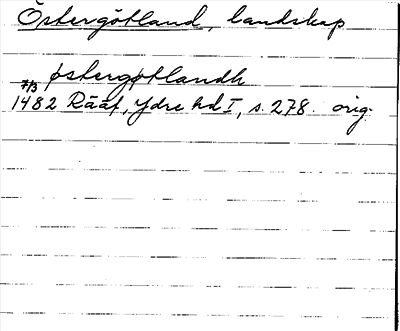 Östergötland, landskap
østergøtlandh
7/3
1482 Rääf, Ydre hd I, s. 278. orig.